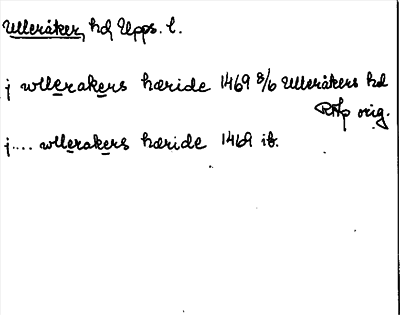 Ulleråker, hd Upps. l.
j wllerakers hæride 1469 8/6 Ulleråkers hd
RAp orig.
j.... wllerakers hæride 1469 ib.